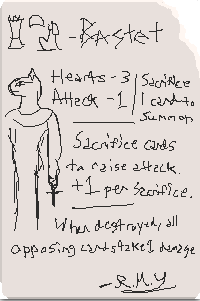 - Bastet
Hearts - 3
Attack - 1
Sacrifice
1 card to
Summon
Sacrifice cards
to raise attack.
+1 per sacrifice.
When destroyed, all
opposing cards take 1 damage
- R.M.Y